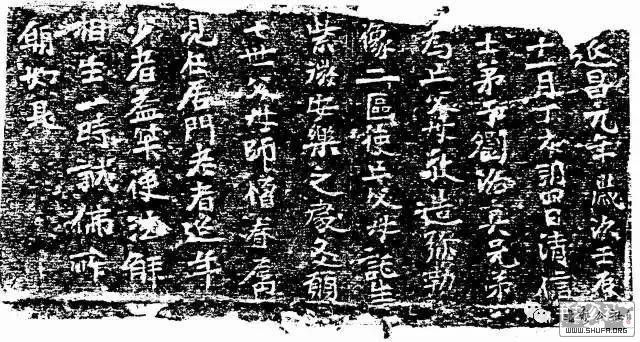 延昌元年歲次壬辰
十一月丁亥朔四日清信
士弟子劉洛真兄弟
為亡父母敬造彌勒
像二區使亡父母託生
紫微安樂之處願
七世父母師僧眷屬
見在居門老者延年
少者益筭使法解
相生一時就佛所
願如是
WWW.SHUFA.ORG